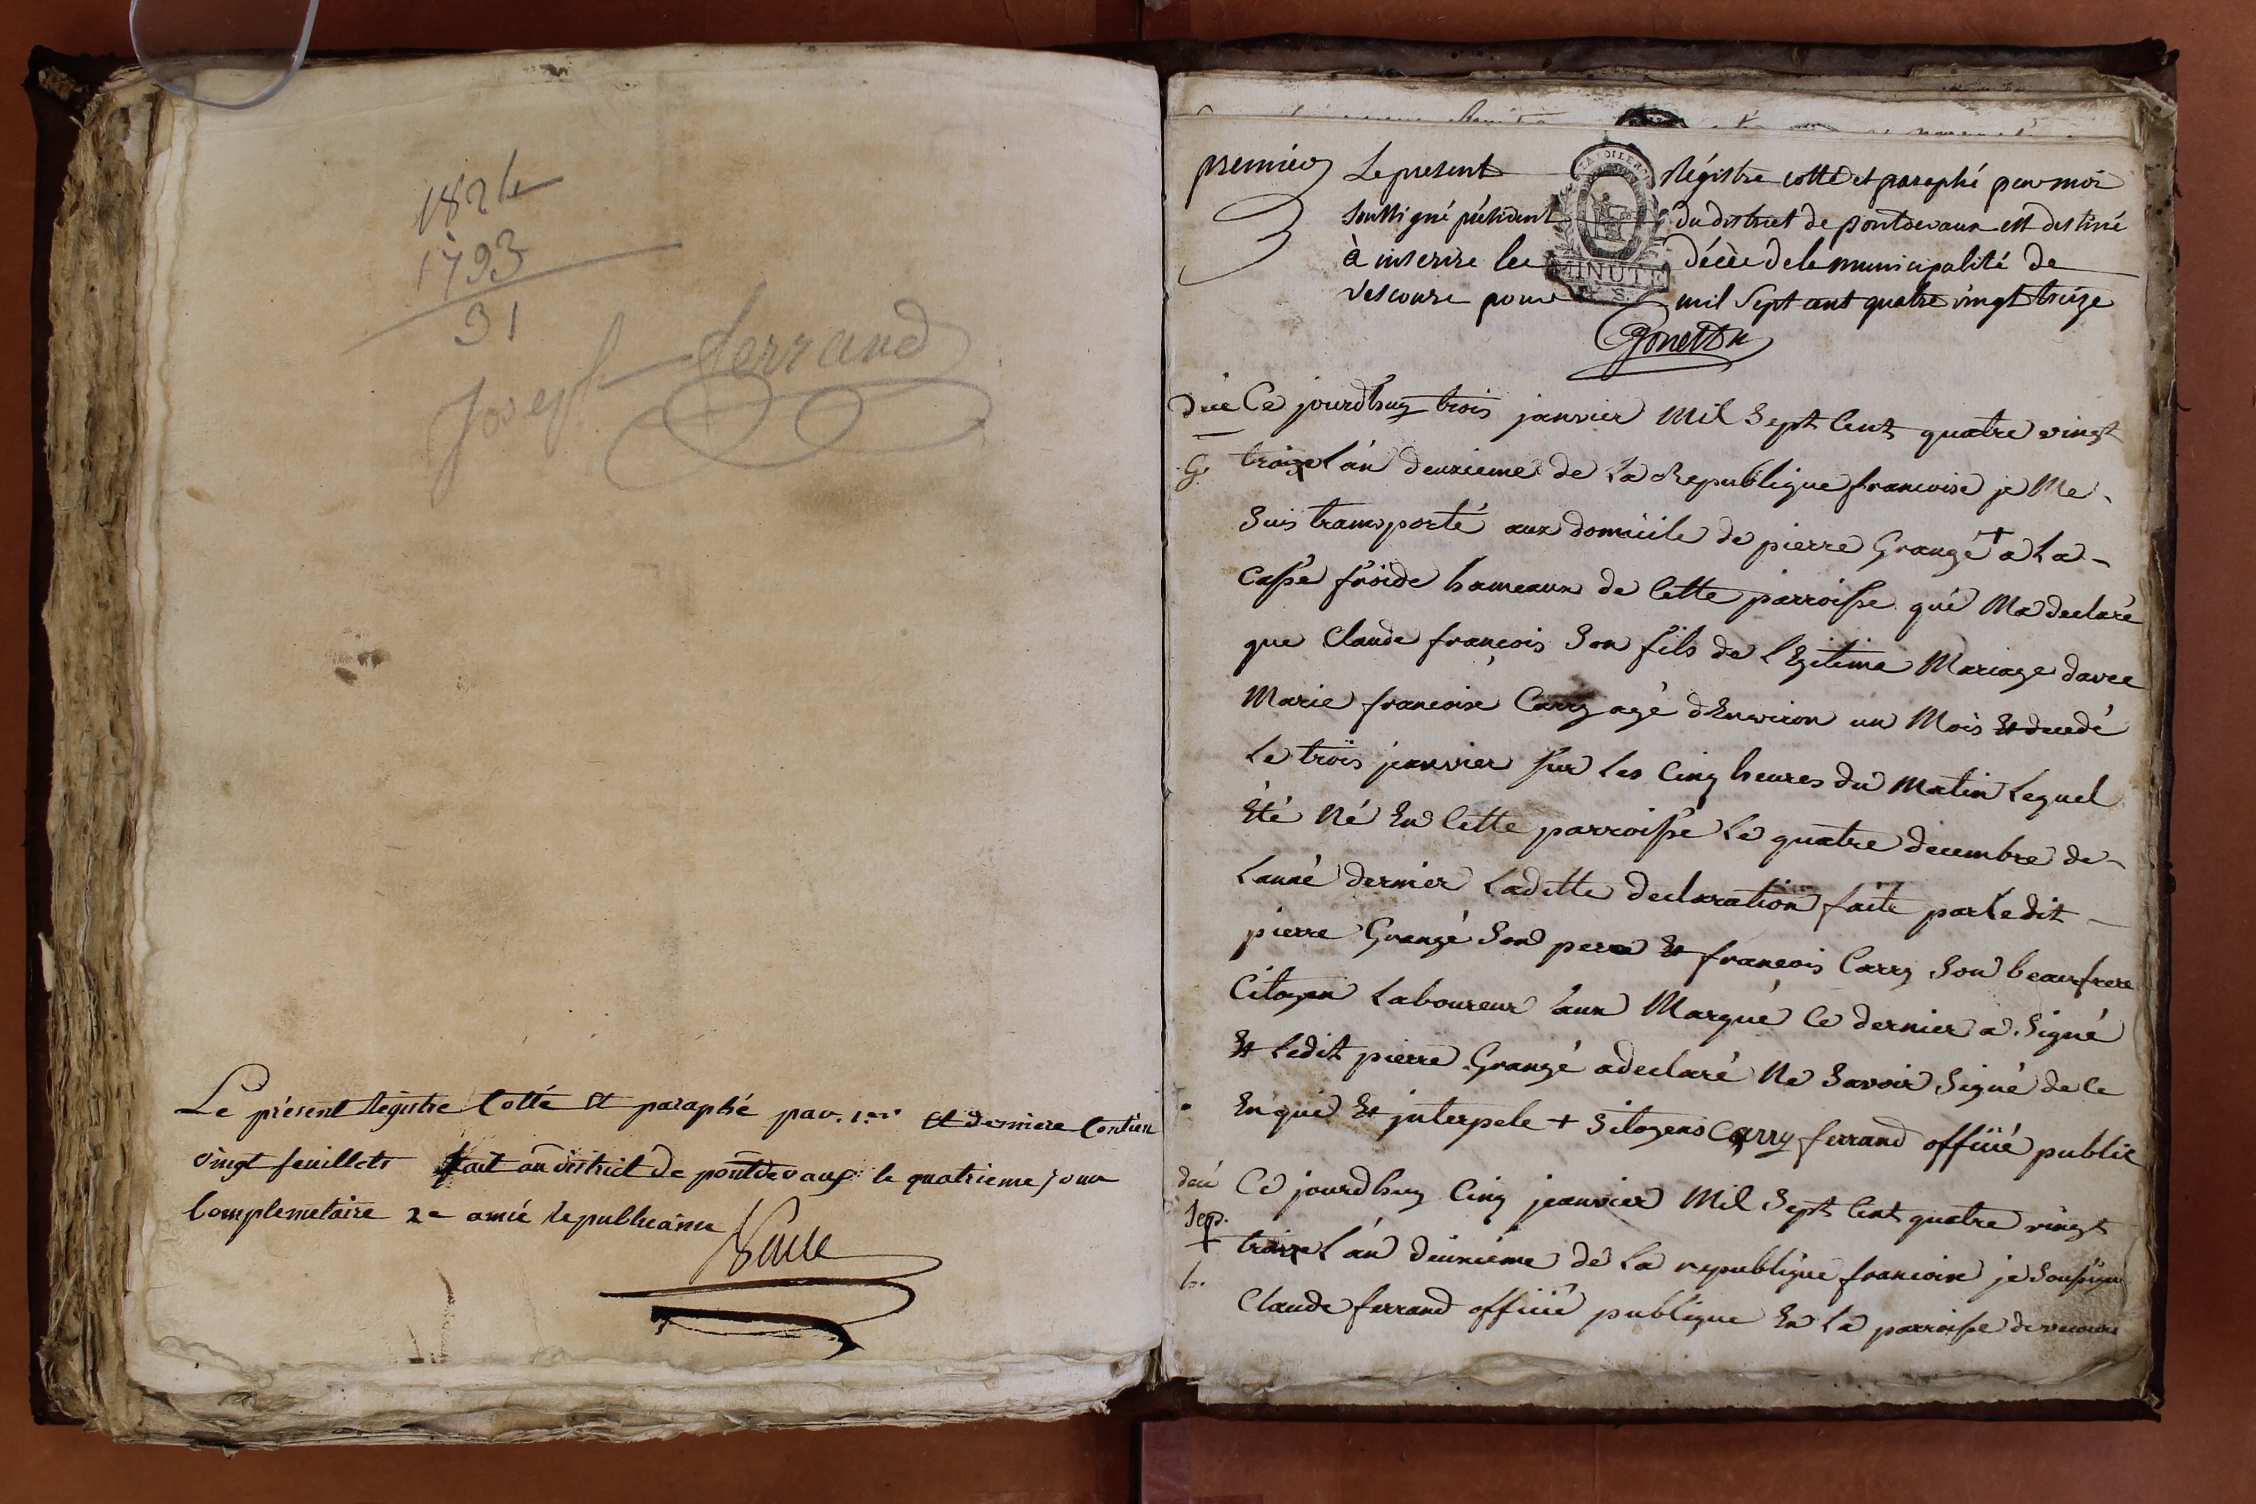 1824
1793
31
Joseph ferrand
Le présent Régistre Cotté et paraphé par 1er et derniere Contien
vingt feuillets fait au district de pontdevaux le quatrieme jour
Complemetaire 2e année republicaine
premier
Le present Régistre cotté et paraphé par moi
soussigné président du district de pontdevaux est destiné
à inscrire les décès de la municipalité de
vescours pour mil sept cent quatre vingt treize
MINUTE
Gonetton
Ce jourdhuy trois janvier Mil Sept Cent quatre vingt
G.
traize L'an deuxieme de La Republique francoise je Me
Suis transporté aux domicile de pierre Grangé + a La
Casse froide hameaux de Cette parroisse qui Ma declaré
que Claude françois Son fils de Legitime Mariage davec
Marie francoise Carry agé dEnviron un Mois Et decedé
Le trois janvier sur Les Cinq heures du Matin Lequel
Eté Né En Cette parroisse Le quatre decembre de
Lanné dernier Laditte declaration faite par Ledit
pierre Grangé Son pere Et francois Carry Son beaufrere
Citoyen Laboureur aux Marqué Ce dernier a Signé
Et Ledit pierre Grangé a declaré Ne Savoir Signé de Ce
Enquis Et interpele + Sitoyens Carry ferrand officié public
Ce jourdhuy Cinq jeanvier Mil Sept Cent quatre vingt
traize L'an deuxiéme de La republique francoise je Sousigne
Claude ferrand officié publique En La parroisse de vecours